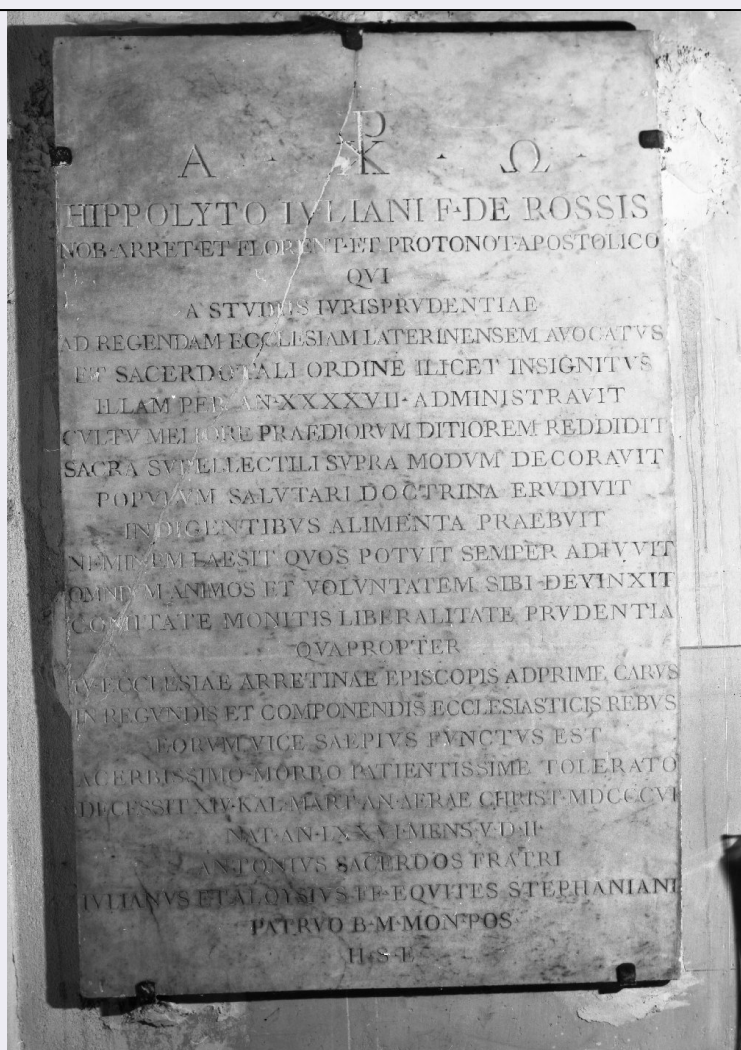 A · ☧ · Ω ·
HIPPOLYTO IVLIANI F·DE ROSSIS
NOB·ARRET·ET FLORENT·ET PROTONOT·APOSTOLICO
QVI
A STVDIIS IVRISPRVDENTIAE
AD REGENDAM ECCLESIAM LATERINENSEM AVOCATVS
ET SACERDOTALI ORDINE ILICET INSIGNITVS
ILLAM PER AN·XXXXVII·ADMINISTRAVIT
CVLTV MELIORE PRAEDIORVM DITIOREM REDDIDIT
SACRA SVPELLECTILI SVPRA MODVM DECORAVIT
POPVLVM SALVTARI DOCTRINA ERVDIVIT
INDIGENTIBVS ALIMENTA PRAEBVIT
NEMINEM LAESIT QVOS POTVIT SEMPER ADIVVIT
OMNIVM ANIMOS ET VOLVNTATEM SIBI DEVINXIT
COMITATE MONITIS LIBERALITATE PRVDENTIA
QVAPROPTER
ECCLESIAE ARRETINAE EPISCOPIS ADPRIME CARVS
IN REGVNDIS ET COMPONENDIS ECCLESIASTICIS REBVS
EORVM VICE SAEPIVS FVNCTVS EST
ACERBISSIMO MORBO PATIENTISSIME TOLERATO
DECESSIT XIV·KAL·MART·AN·AERAE CHRIST·MDCCCVI
NAT·AN·LXXVI·MENS·V·D·II·
ANTONIVS SACERDOS FRATRI
IVLIANVS ET ALOYSIVS EQVITES STEPHANIANI
PATRVO B·M·MON·POS·
H·S·E